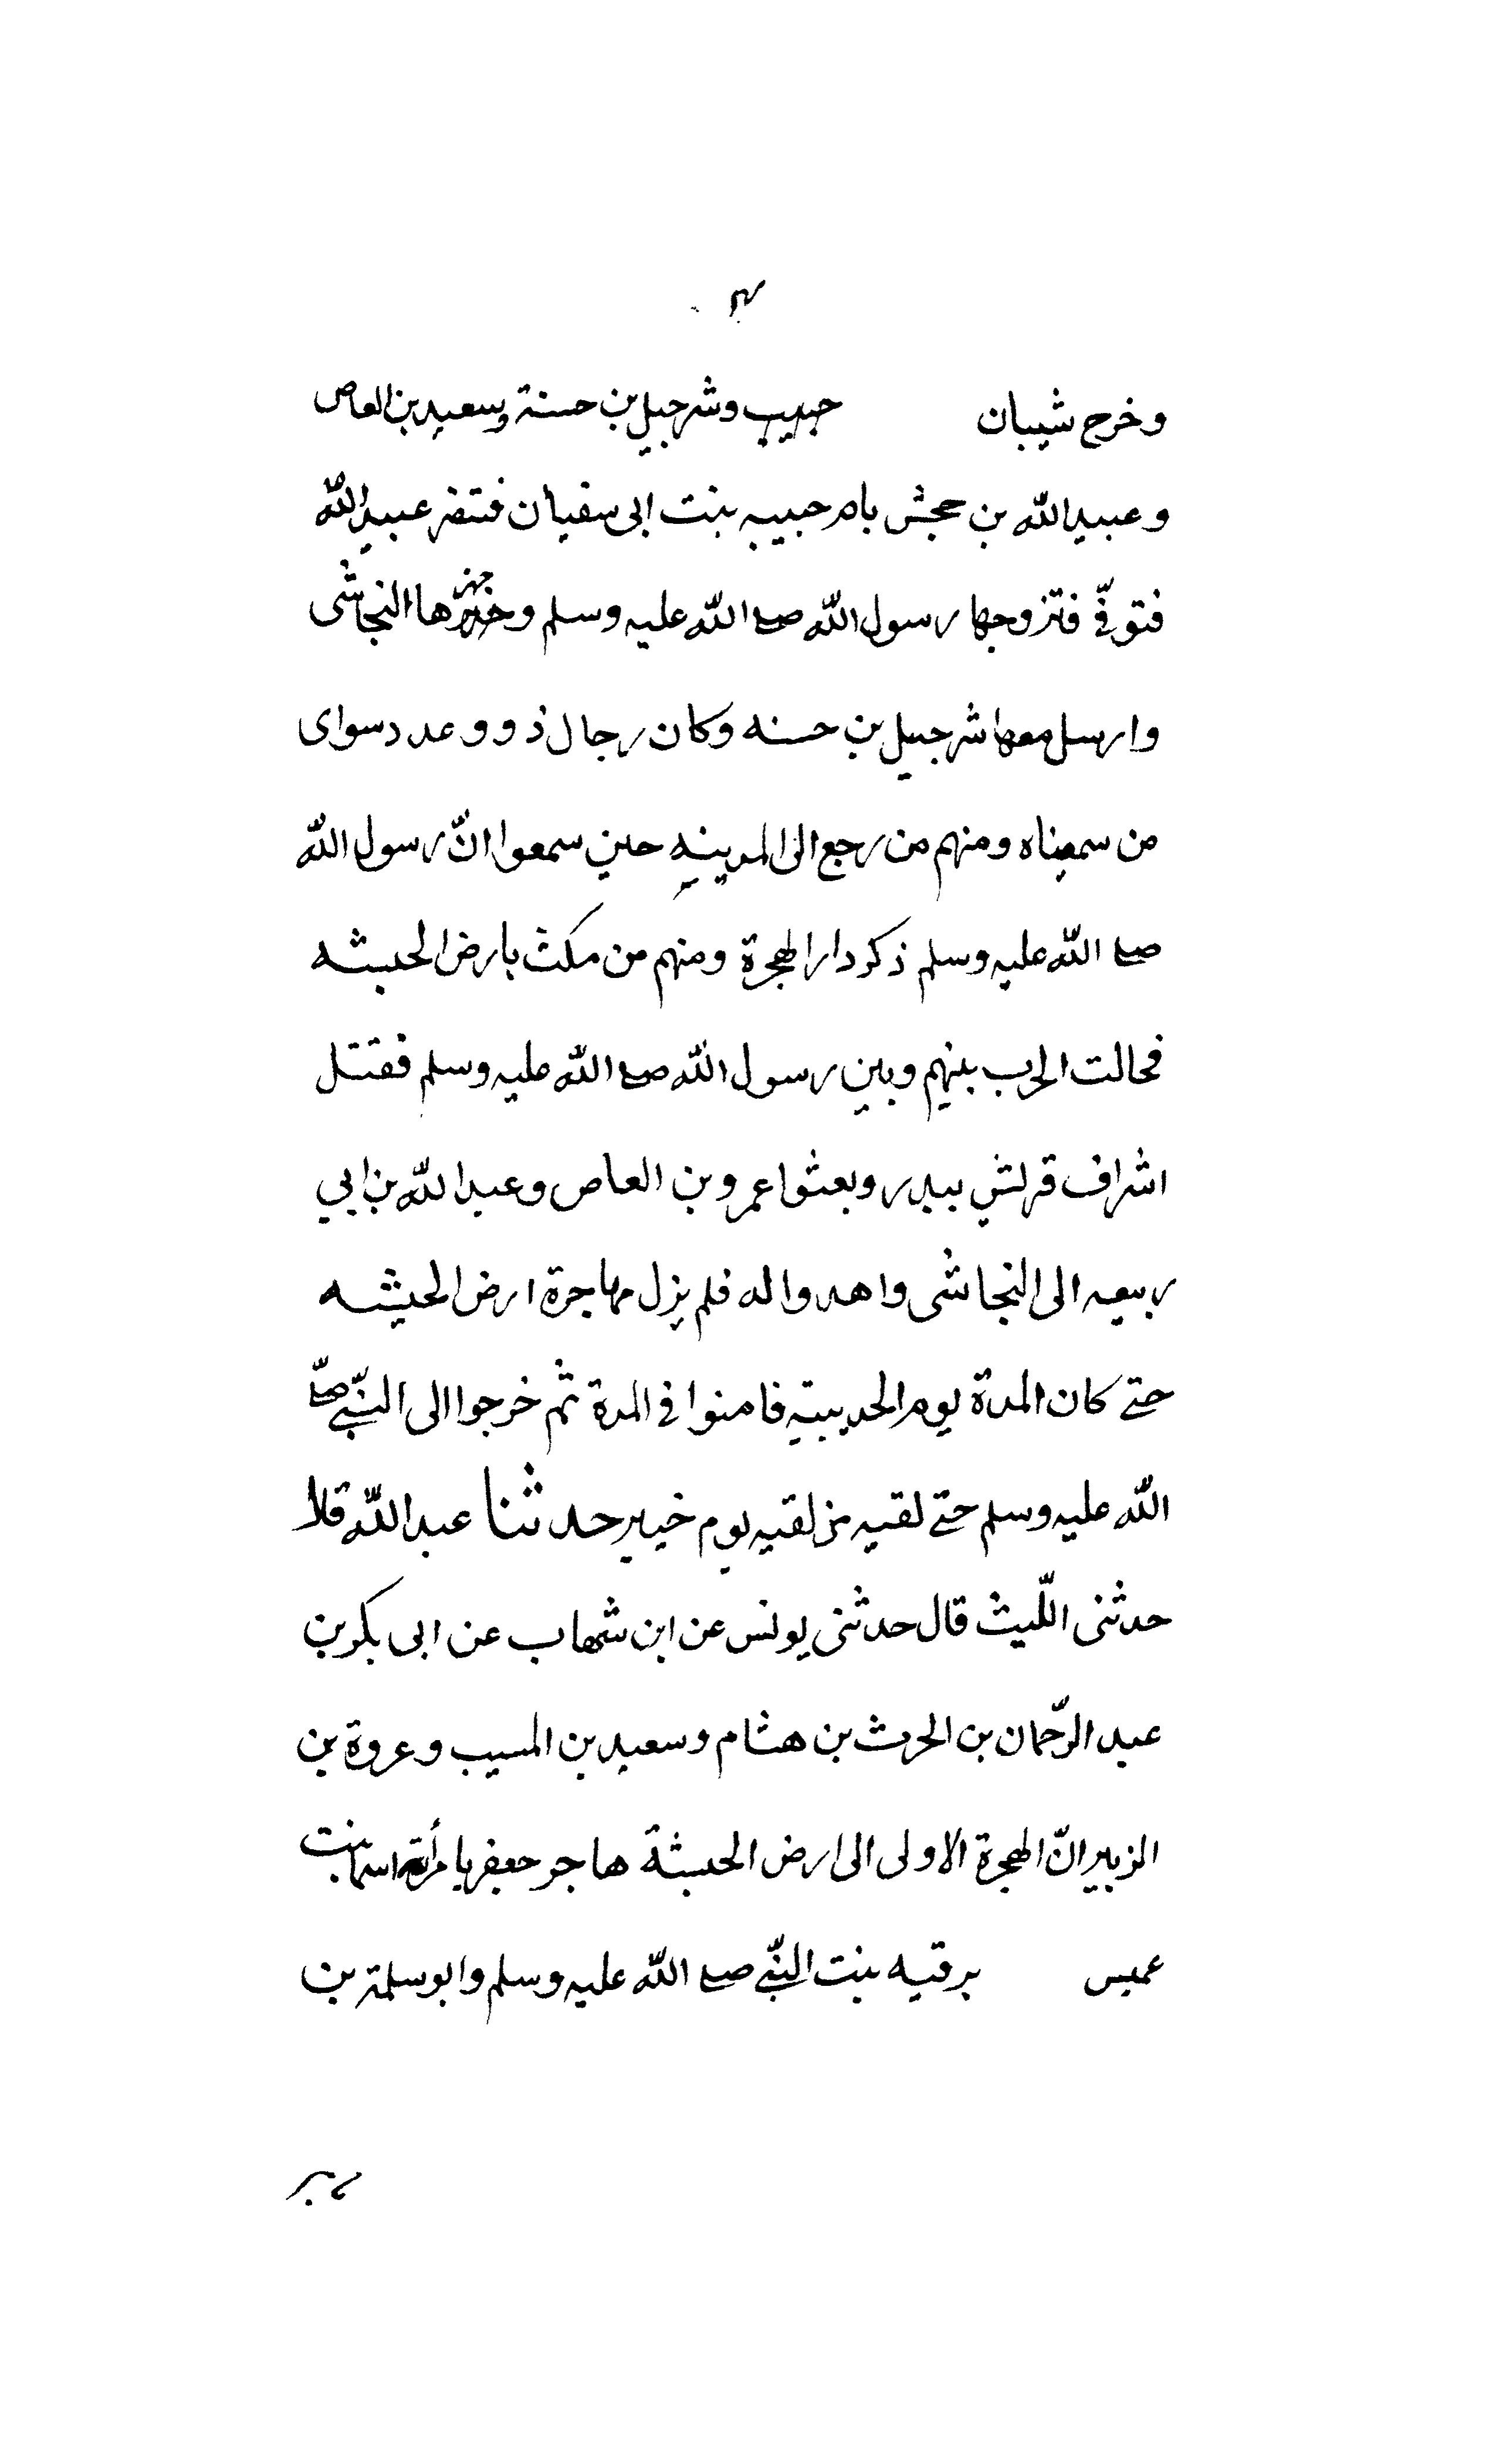 وخرج شيبان حبيب وشرجيل بن حسنة وسعيد بن العاص
وعبيد الله بن حجش بام حبيبه بنت ابى سفيان فتنصر عبيد الله
فتوفّى فتزوجها رسول الله صلے الله عليه وسلم وجهزها النجاشى
وارسل معها شرجيل بن حسنه وكان رجال ذوو عدد سواى
من سمعناه ومنهم من رجع الى المدينه حين سمعوا انّ رسول الله
صلے الله عليه وسلم ذكر دار الهجرة ومنهم من مكث بارض الحبشه
فحالت الحرب بينهم وبين رسول الله صلے الله عليه وسلم فقتل
اشراف قريش ببدر وبعثوا عمرو بن العاص وعبد الله بن ابي
ربيعه الى النجاشى واهدوا له فلم يزل مهاجرة ارض الحبشه
حتے كان المدة يوم الحديبية فامنوا فى المدة ثم خرجوا الى النبّے صلّے
الله عليه وسلم حتے لقيه من لقيه يوم خيبر حدثنا عبد الله قال
حدثنى اللّيث قال حدثنى يونس عن ابن شهاب عن ابى بكر بن
عبد الرّحمان بن الحرث بن هشام وسعيد بن المسيب وعروة بن
الزبير انّ الهجرة الاولى الى ارض الحبشة هاجر جعفر بامرأته اسما بنت
عميس برقيه بنت النبّے صلے الله عليه وسلم وابو سلمة بن